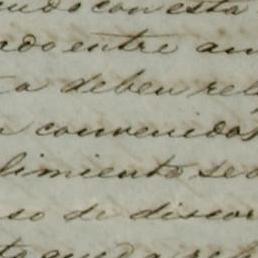 con esta
ado entre am
a deben rel
a convenidos
limiento sea
so de discor